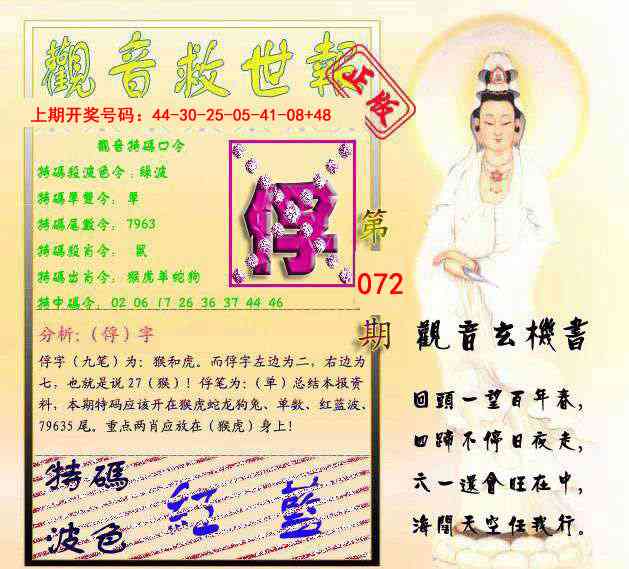 觀音救世報
正版
上期开奖号码：44-30-25-05-41-08+48
觀音特碼口令
特碼殺波色令：綠波
特碼單雙令：單
特碼尾數令：7963
特碼殺肖令：鼠
特碼出肖令：猴虎羊蛇狗
特中碼令：02 06 17 26 36 37 44 46
俘
第
072
期
分析：（俘）字
俘字（九笔）为：猴和虎。而俘字左边为二，右边为
七，也就是说 27（猴）！俘笔为：（单）总结本报资
料，本期特码应该开在猴虎蛇龙狗兔、单数、红蓝波、
79635 尾。重点两肖应放在（猴虎）身上！
特碼
波色
红 藍
觀音玄機書
回頭一望百年春，
四蹄不停日夜走，
六一還會旺在中，
海闊天空任我行。